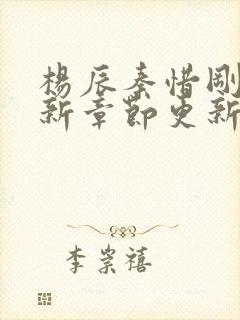 楊辰秦惜剛
新章節更新
李崇禧